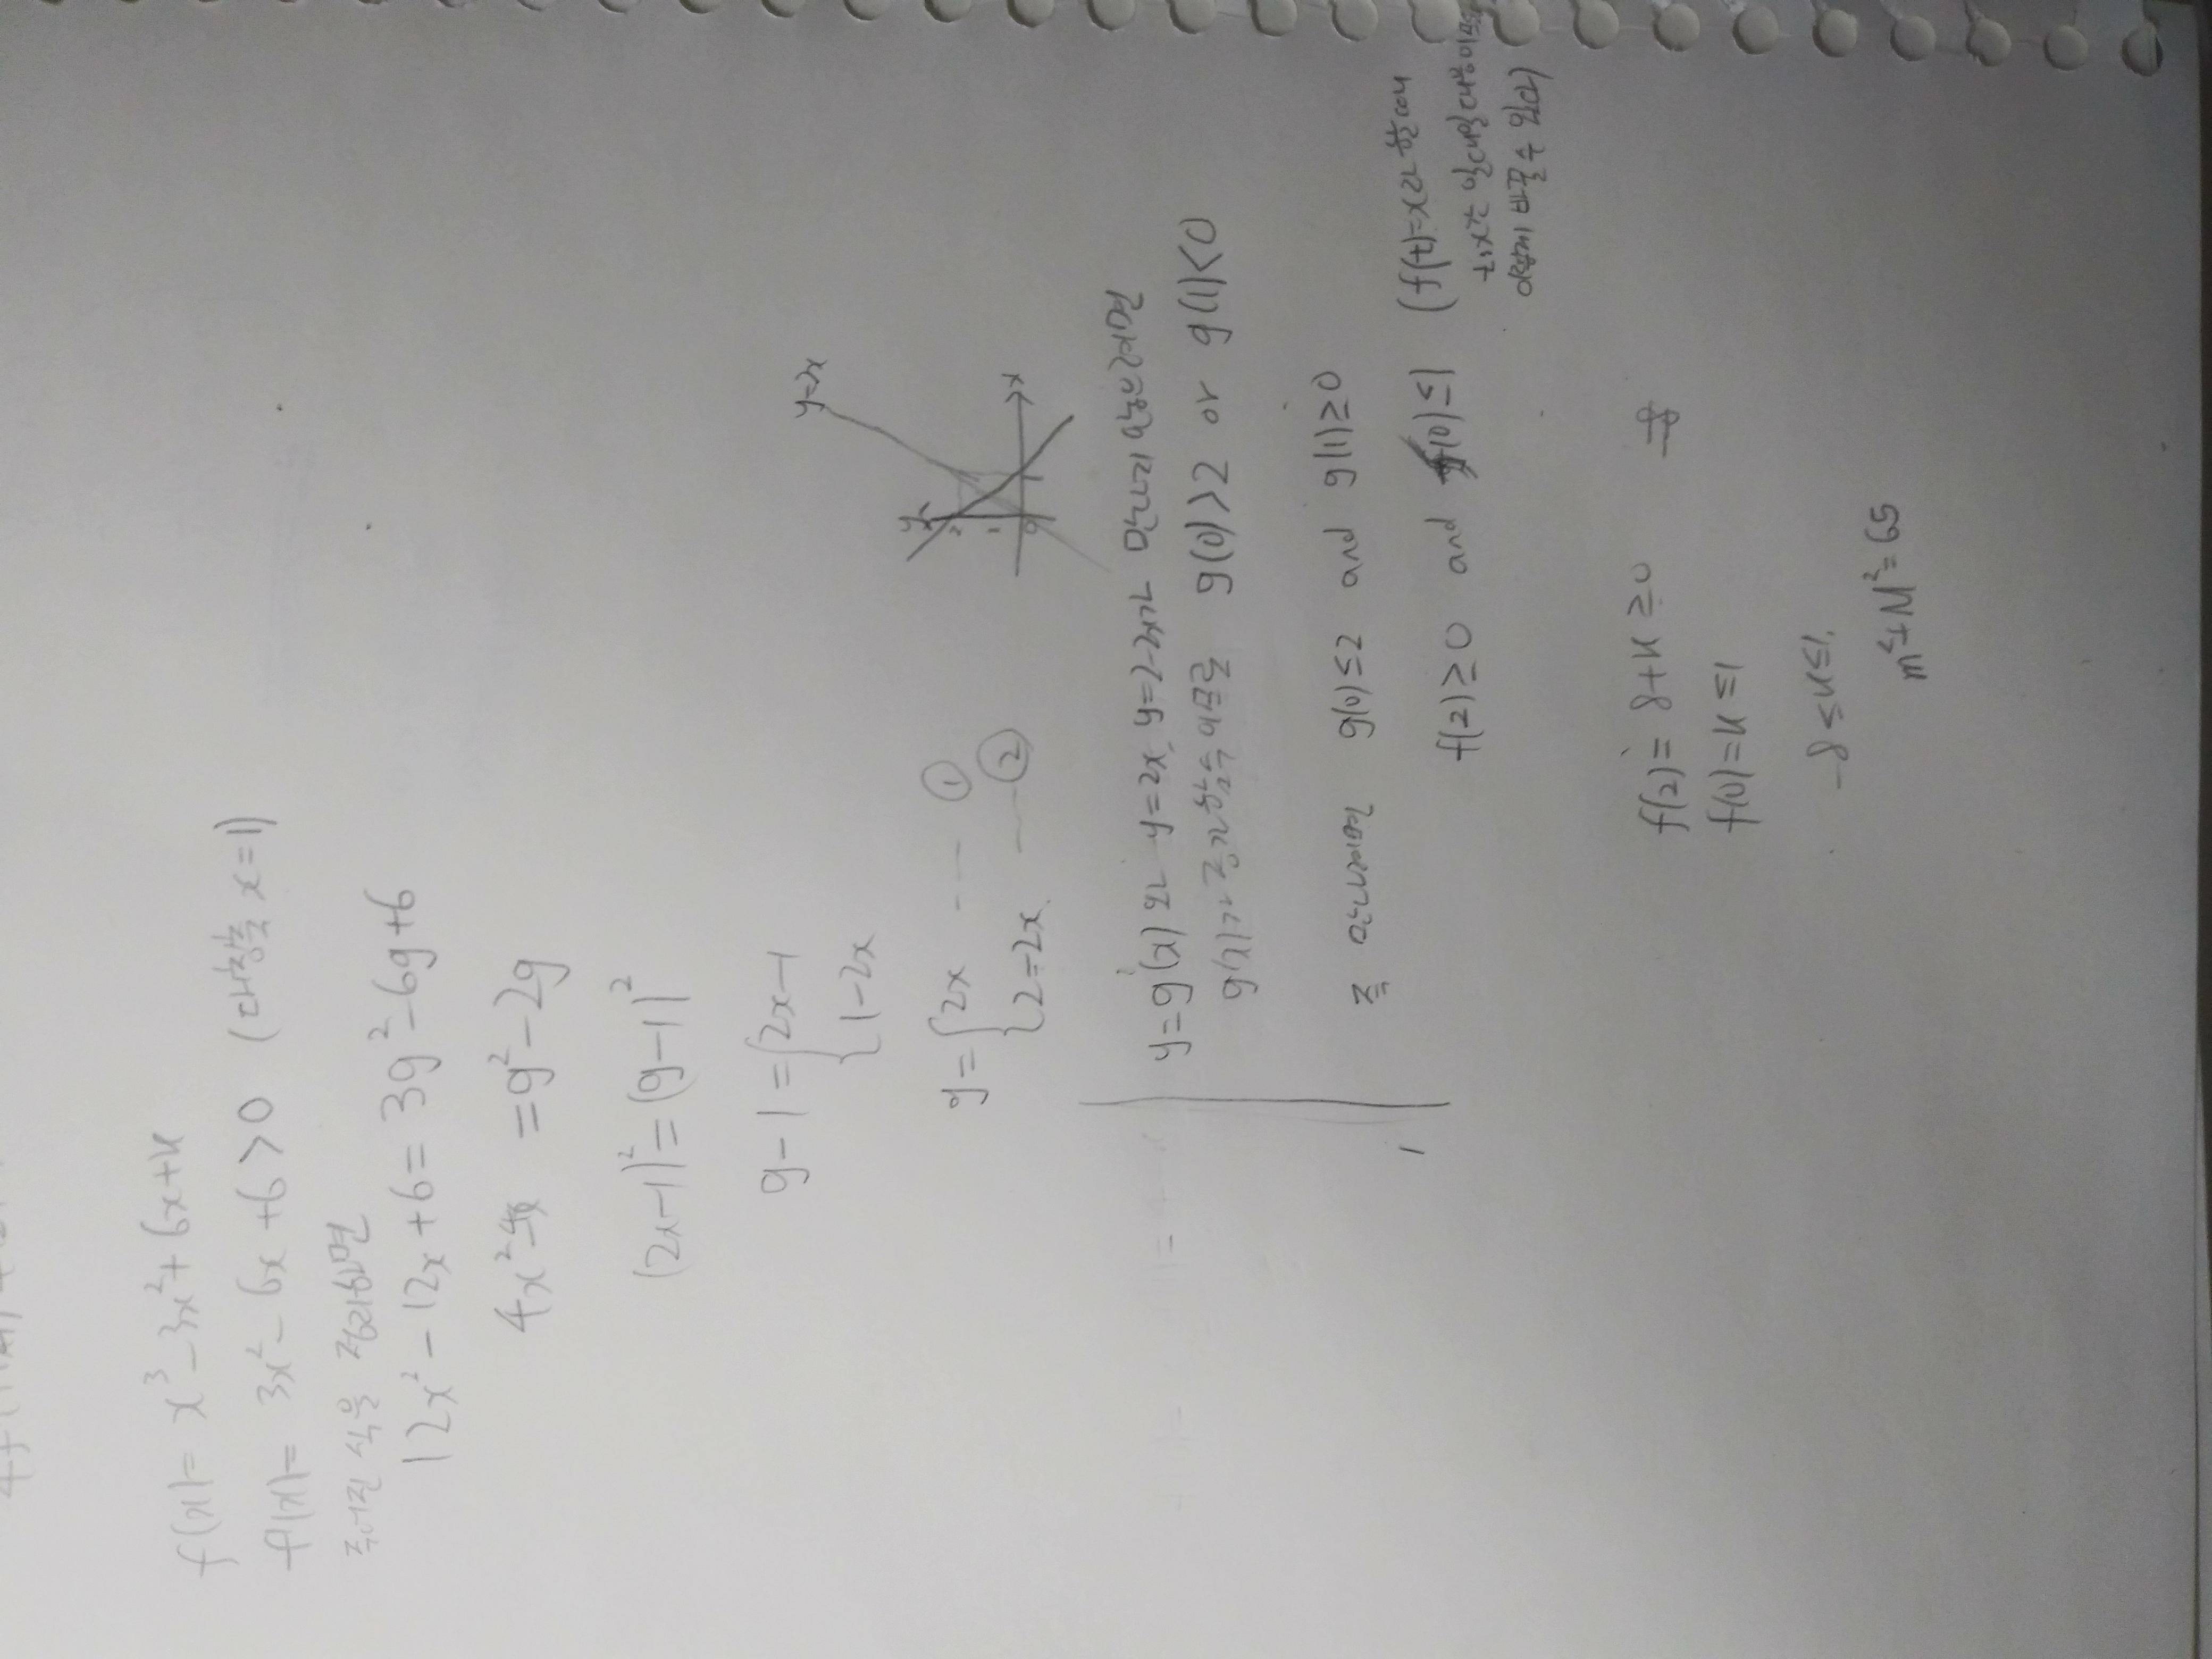 f(x)= x³-3x²+6x+k
f'(x)= 3x²-6x+6>0 (대칭축 x=1)
주어진 식을 정리하면
12x²-12x+6= 3g²-6g+6
4x²-4x =g²-2g
(2x-1)²=(g-1)²
g-1={2x-1
{1-2x
y=2x
g={2x ---- ①
{2-2x ---- ②
y
2
1
0 1 x
y=g(x)와 y=2x, y=2-2x가 만나지 않으려면
g(x)가 증가함수이므로 g(0)>2 or g(1)<0
즉 만나려면 g(0)≤2 and g(1)≥0
f(2)≥0 and f(0)≤1 (f(t)=x라 할때
t,x가 일대일대응이므로
이렇게 바꿀수 있다)
f(2)= 8+k≥0
f(0)=k≤1
-8≤k≤1.
m²+M²=65